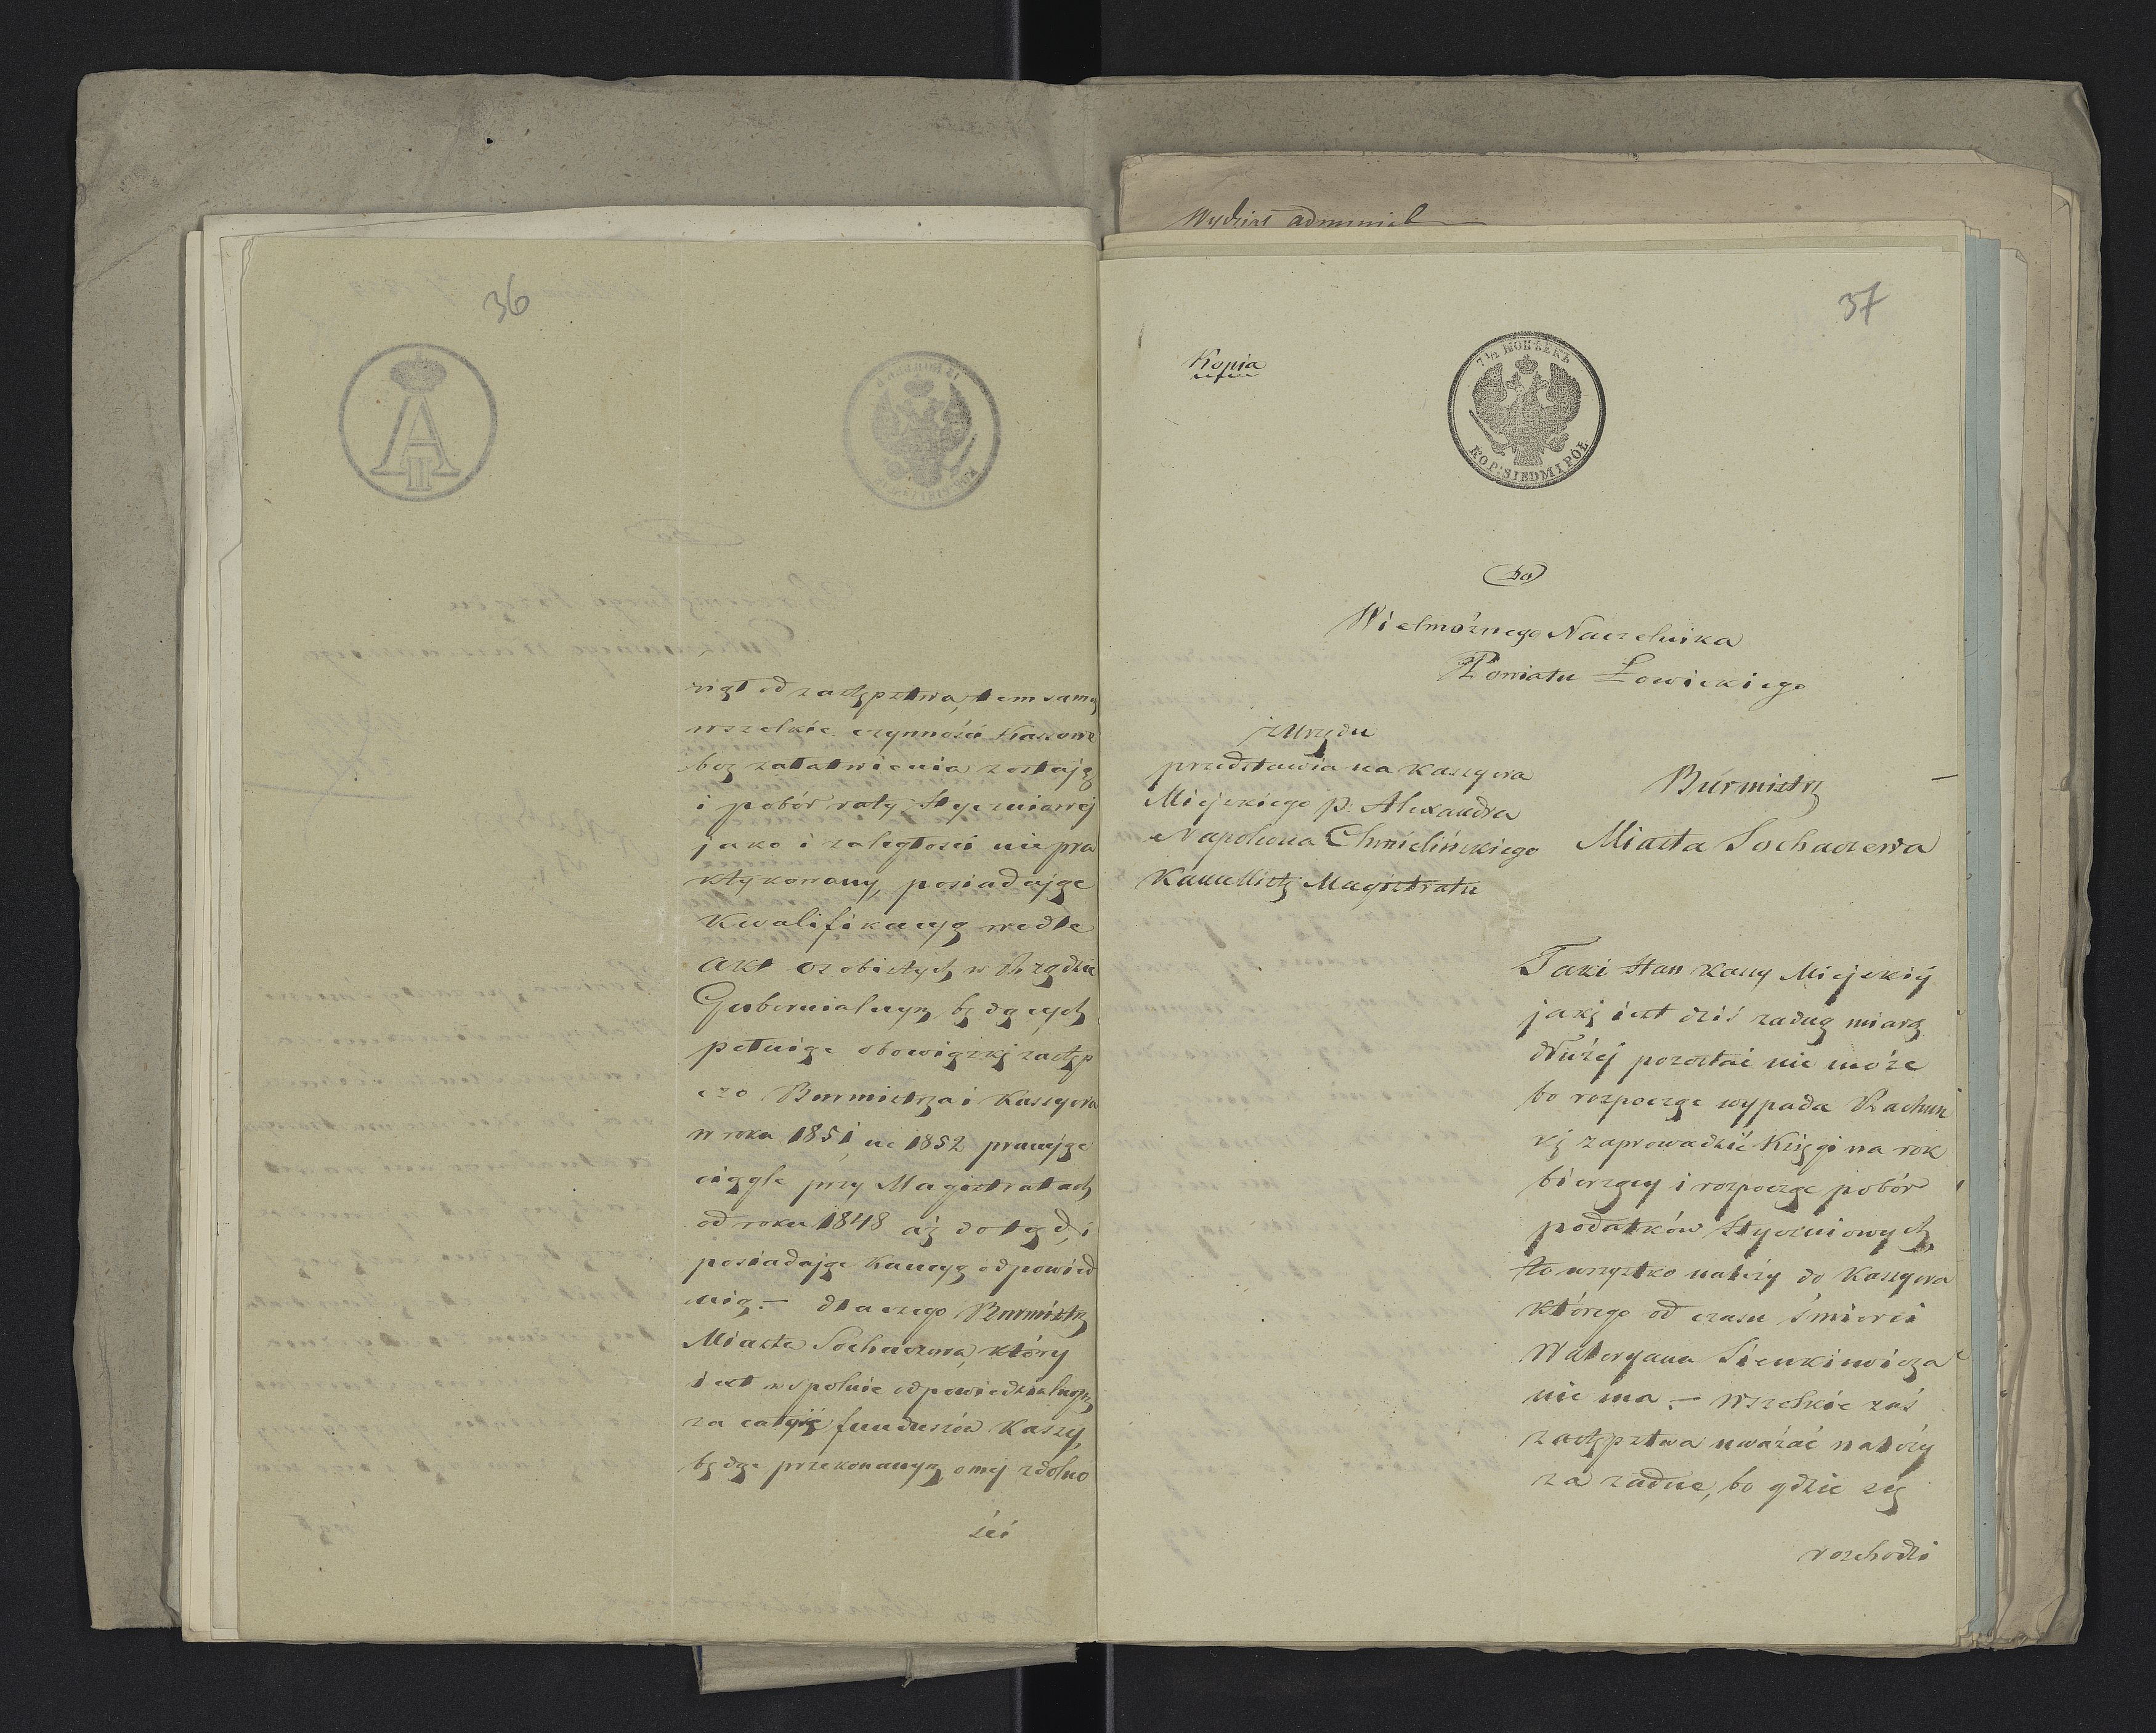 36
nigł od zastępstwa, tem samą
wszelkie czynności Kassowe
bez załatwienia zostają
i pobór raty Styczniowej
jako i zaległości nie pra
ktykowany, posiadając
Kwalifikacyą wedle
akt osobistych w Rządzie
Gubernialnym będących
pełniąc obowiązki zastęp
czo Burmistrza i Kassyera
w roku 1851, 1852 pracując
ciągle przy Magistratach
od roku 1848 aż dotąd, i
posiadając Kaucyą odpowied
nią. — dla czego Burmistrz
Miasta Sochaczewa, który
iest wspólnie odpowiedzialnym
za całość funduszów Kassy,
będąc przekonanym o mej zdolno
ści
Wydział administ
37
Kopia
7½ КОПѢЕКЪ
KOP: SIEDM I PÓŁ
Do
Wielmożnego Naczelnika
Powiatu Łowickiego
z Urzędu
przedstawia na Kassyera
Miejskiego p. Alexandra
Napoleona Chmielińskiego
Kancellistę Magistratu
Burmistrz
Miasta Sochaczewa
Taki stan Kassy Miejskiéj
jaki iest dziś żadną miarą
dłużéj pozostać nie może
bo rozpocząć wypada Rachun
ki zaprowadzić Księgi na rok
bieżący i rozpocząć pobór
podatków Styczniowych
to wszystko należy do Kassyera
którego od czasu śmierci
Waleryana Sienkiewicza
nie ma. — Wszelkie zaś
zastępstwa uważać należy
za żadne, bo gdzie się
rozchodzi